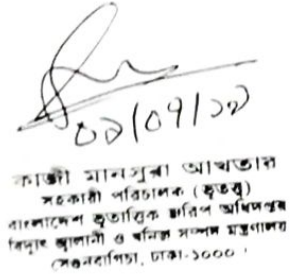 ০৯/০৭/২০
কাজী মানসুরা আখতার
সহকারী পরিচালক (ভূতত্ত্ব)
বাংলাদেশ ভূতাত্ত্বিক জরিপ অধিদপ্তর
বিদ্যুৎ জ্বালানী ও খনিজ সম্পদ মন্ত্রণালয়
সেগুনবাগিচা, ঢাকা-১০০০